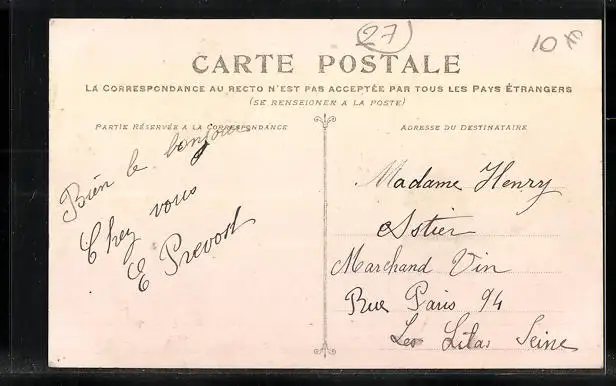 27
10 €
CARTE POSTALE
LA CORRESPONDANCE AU RECTO N'EST PAS ACCEPTÉE PAR TOUS LES PAYS ÉTRANGERS
(SE RENSEIGNER A LA POSTE)
PARTIE RÉSERVÉE A LA CORRESPONDANCE
ADRESSE DU DESTINATAIRE
Bien le bonjour
Chez vous
E Prevost
Madame Henry
Astier
Marchand Vin
Rue Paris 94
Les Lilas Seine